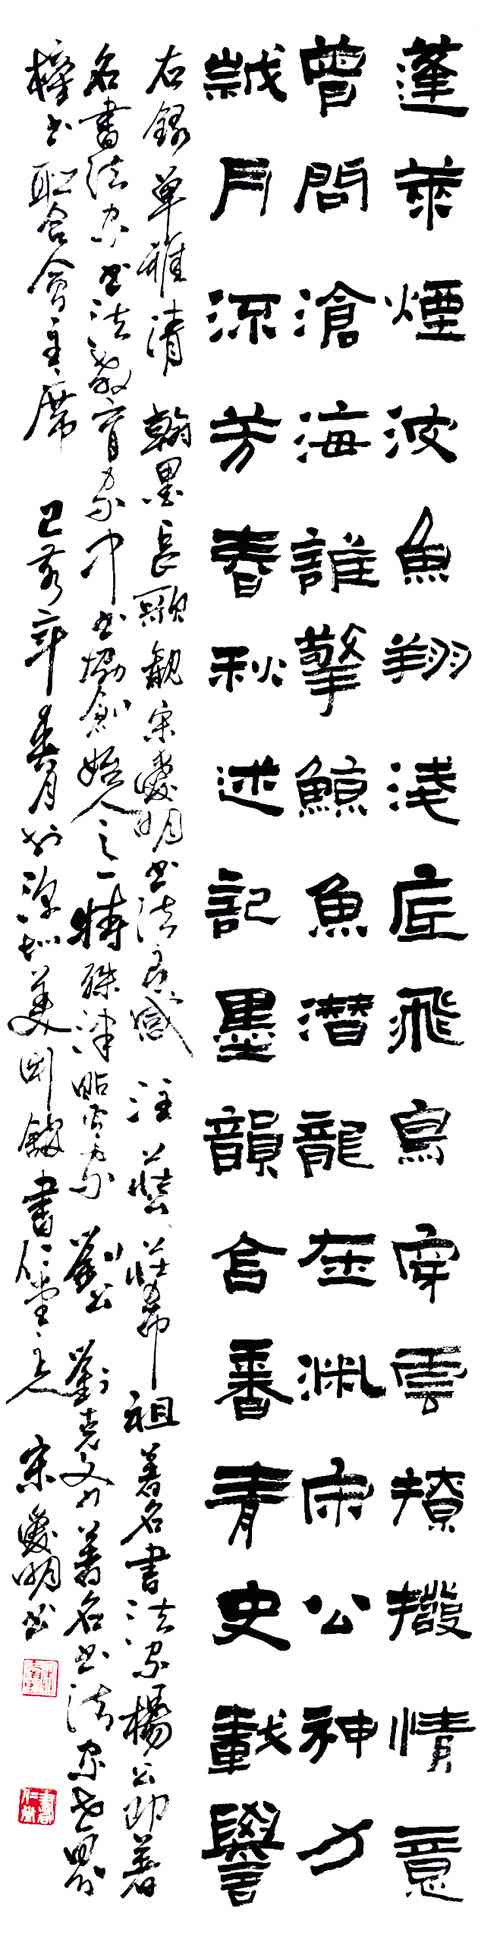 蓬萊煙波魚翔淺底飛鳥穿雲撩撥情意
曾問滄海誰擎鯨魚潜龍在淵宋公神力
歲月流芳春秋述記墨韻含香青史載譽
右録單雅清 翰墨長歌觀宋愛明書法有感 注 莊公 莊希祖著名書法家楊公即著
名書法家書法教育家中書協創始人之一特殊津貼專家 劉公 劉克文 著名書法家世界
書聯合會主席 己亥年春月於深圳美 館書仁堂主人 宋愛明書